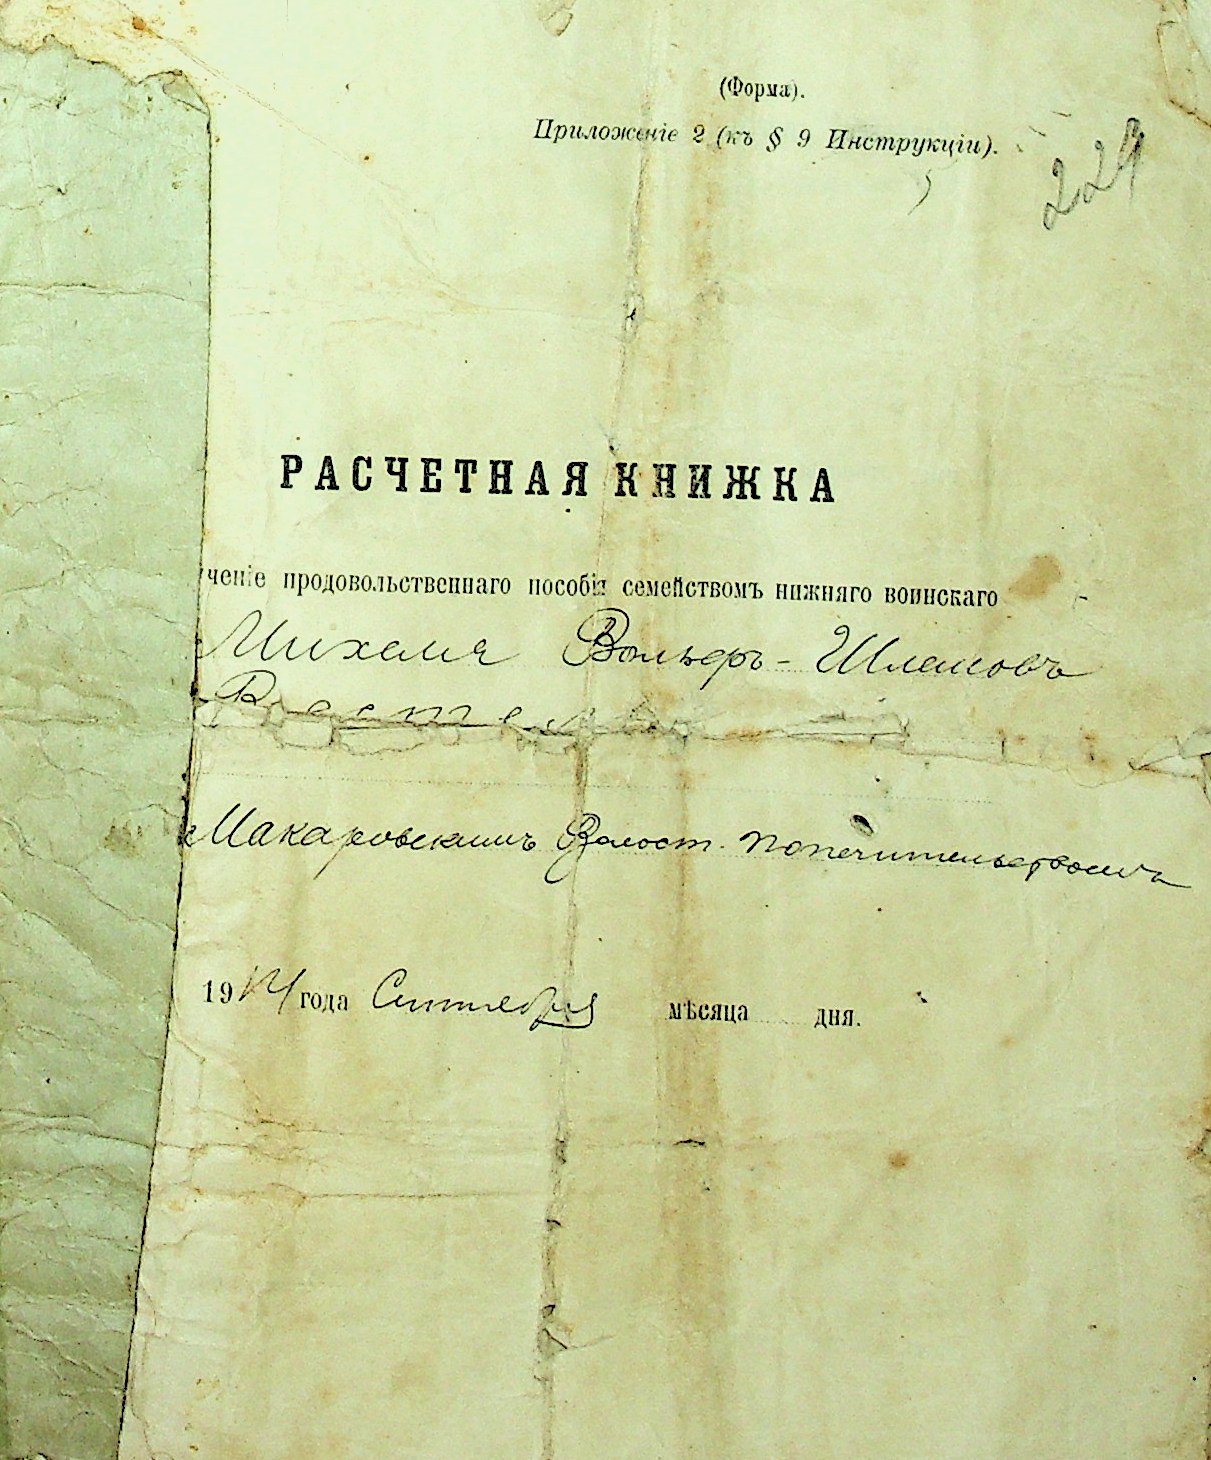 (Форма).
Приложеніе 2 (къ § 9 Инструкціи).
229
РАСЧЕТНАЯ КНИЖКА
ченіе продовольственнаго пособія семействомъ нижняго воинскаго
Михеля Вольферъ-Шлемовъ
Макаровскимъ Волост. попечительствомъ
1914 года Сентября мѣсяца дня.